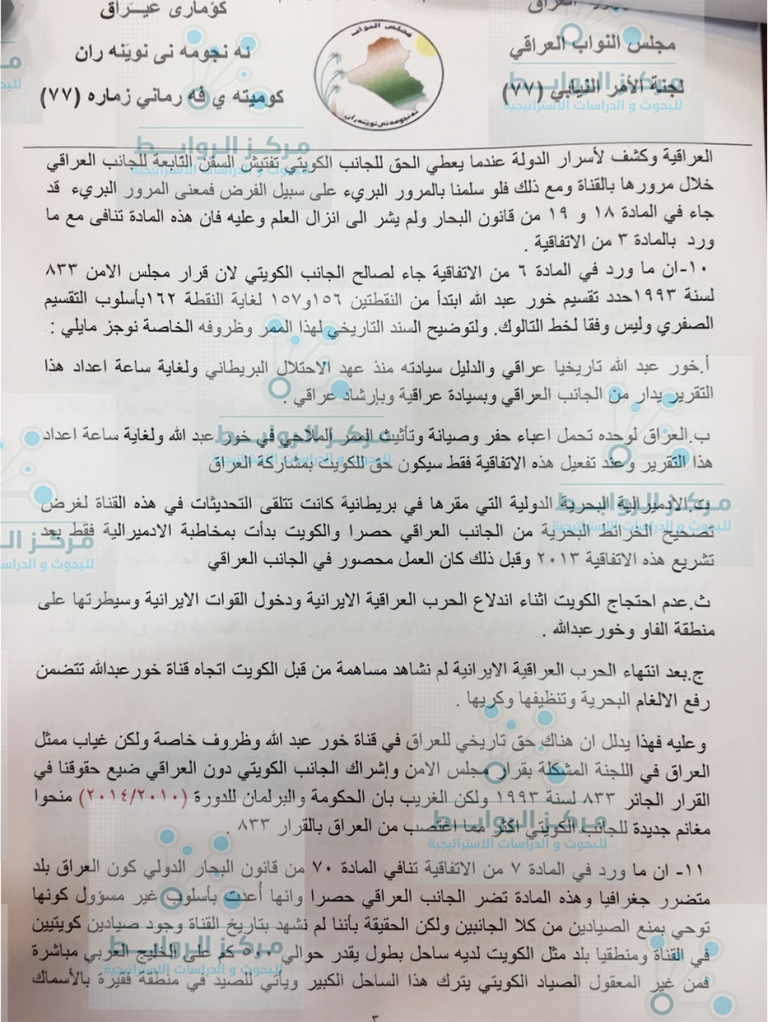 كۆماری عێراق
ئه نجومه نى نوێنه ران
كوميته ى فه رمانى ژماره (٧٧)
مجلس النواب
ئه نجومه نى نوێنه ران
العراق
مجلس النواب العراقي
لجنة الأمر النيابي (٧٧)
العراقية وكشف لأسرار الدولة عندما يعطي الحق للجانب الكويتي تفتيش السفن التابعة للجانب العراقي
خلال مرورها بالقناة ومع ذلك فلو سلمنا بالمرور البريء على سبيل الفرض فمعنى المرور البريء قد
جاء في المادة ١٨ و ١٩ من قانون البحار ولم يشر الى انزال العلم وعليه فان هذه المادة تنافى مع ما
ورد بالمادة ٣ من الاتفاقية .
١٠-ان ما ورد في المادة ٦ من الاتفاقية جاء لصالح الجانب الكويتي لان قرار مجلس الامن ٨٣٣
لسنة ١٩٩٣حدد تقسيم خور عبد الله ابتدأ من النقطتين ١٥٦و١٥٧ لغاية النقطة ١٦٢بأسلوب التقسيم
الصفري وليس وفقا لخط التالوك. ولتوضيح السند التاريخي لهذا الممر وظروفه الخاصة نوجز مايلي :
أ.خور عبد الله تاريخيا عراقي والدليل سيادته منذ عهد الاحتلال البريطاني ولغاية ساعة اعداد هذا
التقرير يدار من الجانب العراقي وبسيادة عراقية وبإرشاد عراقي .
ب.العراق لوحده تحمل اعباء حفر وصيانة وتأثيث الممر الملاحي في خور عبد الله ولغاية ساعة اعداد
هذا التقرير وعند تفعيل هذه الاتفاقية فقط سيكون حق للكويت بمشاركة العراق
ت.الادميرالية البحرية الدولية التي مقرها في بريطانية كانت تتلقى التحديثات في هذه القناة لغرض
تصحيح الخرائط البحرية من الجانب العراقي حصرا والكويت بدأت بمخاطبة الادميرالية فقط بعد
تشريع هذه الاتفاقية ٢٠١٣ وقبل ذلك كان العمل محصور في الجانب العراقي
ث.عدم احتجاج الكويت اثناء اندلاع الحرب العراقية الايرانية ودخول القوات الايرانية وسيطرتها على
منطقة الفاو وخورعبدالله .
ج.بعد انتهاء الحرب العراقية الايرانية لم نشاهد مساهمة من قبل الكويت اتجاه قناة خورعبدالله تتضمن
رفع الالغام البحرية وتنظيفها وكريها .
وعليه فهذا يدلل ان هناك حق تاريخي للعراق في قناة خور عبد الله وظروف خاصة ولكن غياب ممثل
العراق في اللجنة المشكلة بقرار مجلس الامن وإشراك الجانب الكويتي دون العراقي ضيع حقوقنا في
القرار الجائر ٨٣٣ لسنة ١٩٩٣ ولكن الغريب بان الحكومة والبرلمان للدورة (٢٠١٤/٢٠١٠) منحوا
مغانم جديدة للجانب الكويتي اكثر مما اغتصب من العراق بالقرار ٨٣٣ .
١١- ان ما ورد في المادة ٧ من الاتفاقية تنافي المادة ٧٠ من قانون البحار الدولي كون العراق بلد
متضرر جغرافيا وهذه المادة تضر الجانب العراقي حصرا وانها أعدت بأسلوب غير مسؤول كونها
توحي بمنع الصيادين من كلا الجانبين ولكن الحقيقة بأننا لم نشهد بتاريخ القناة وجود صيادين كويتيين
في القناة ومنطقيا بلد مثل الكويت لديه ساحل بطول يقدر حوالي ٥٠٠ كم على الخليج العربي مباشرة
فمن غير المعقول الصياد الكويتي يترك هذا الساحل الكبير ويأتي للصيد في منطقة فقيرة بالأسماك
٣
مركز الروابط
للبحوث و الدراسات الاستراتيجية